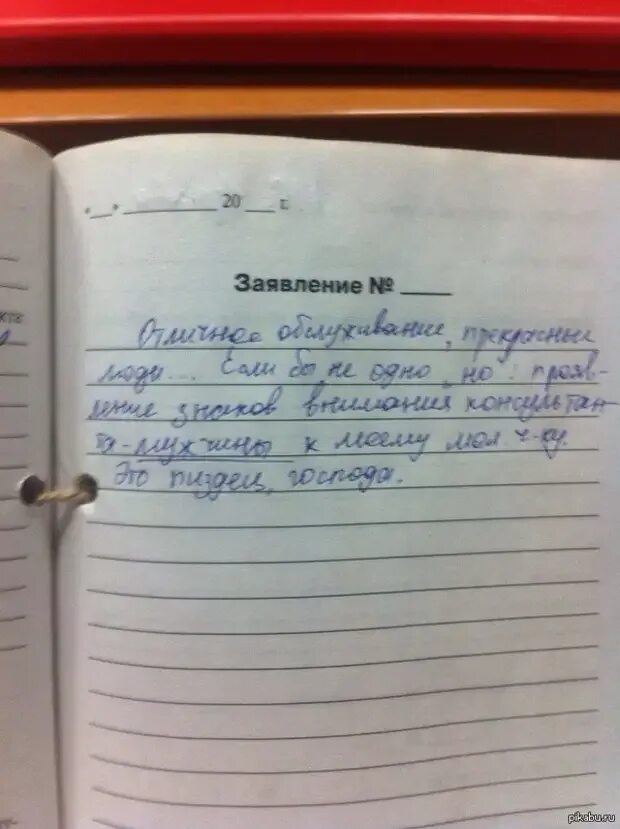 «__» ________ 20 __ г.
Заявление № ____
Отличное обслуживание, прекрасные
люди... Если бы не одно „но": прояв-
ление знаков внимания консультан-
та-мужчины к моему мол. ч-ку.
Это пиздец, господа.
pikabu.ru